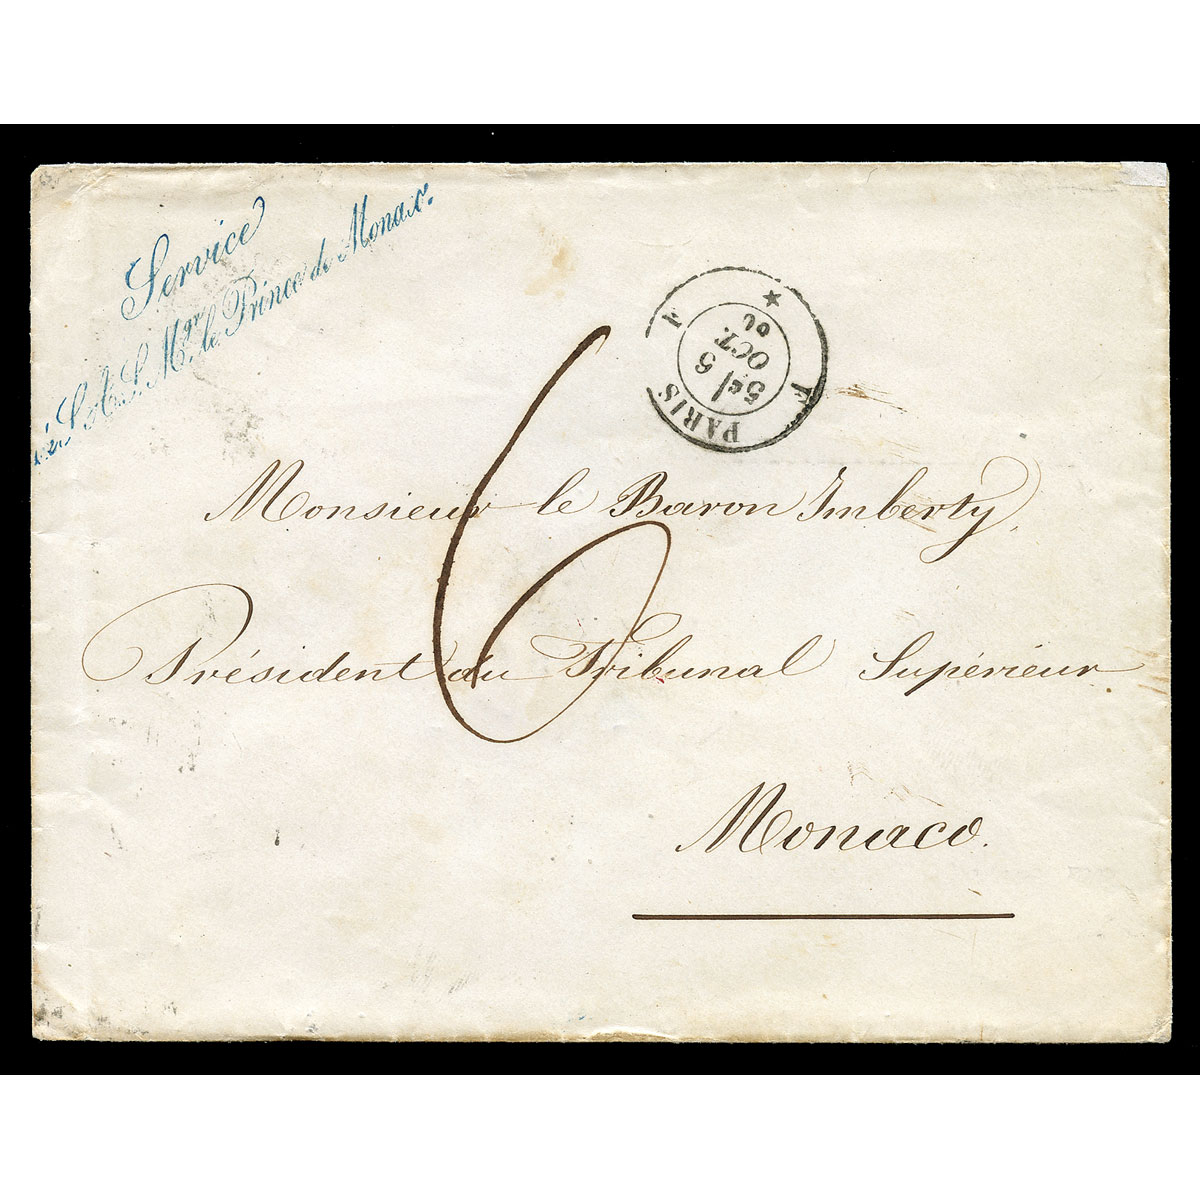 Service
de S. A. S. Mgr. le Prince de Monaco.
PARIS
F
F
5e/
5
OCT.
60
6
Monsieur le Baron Imberty,
Président du Tribunal Supérieur
Monaco.